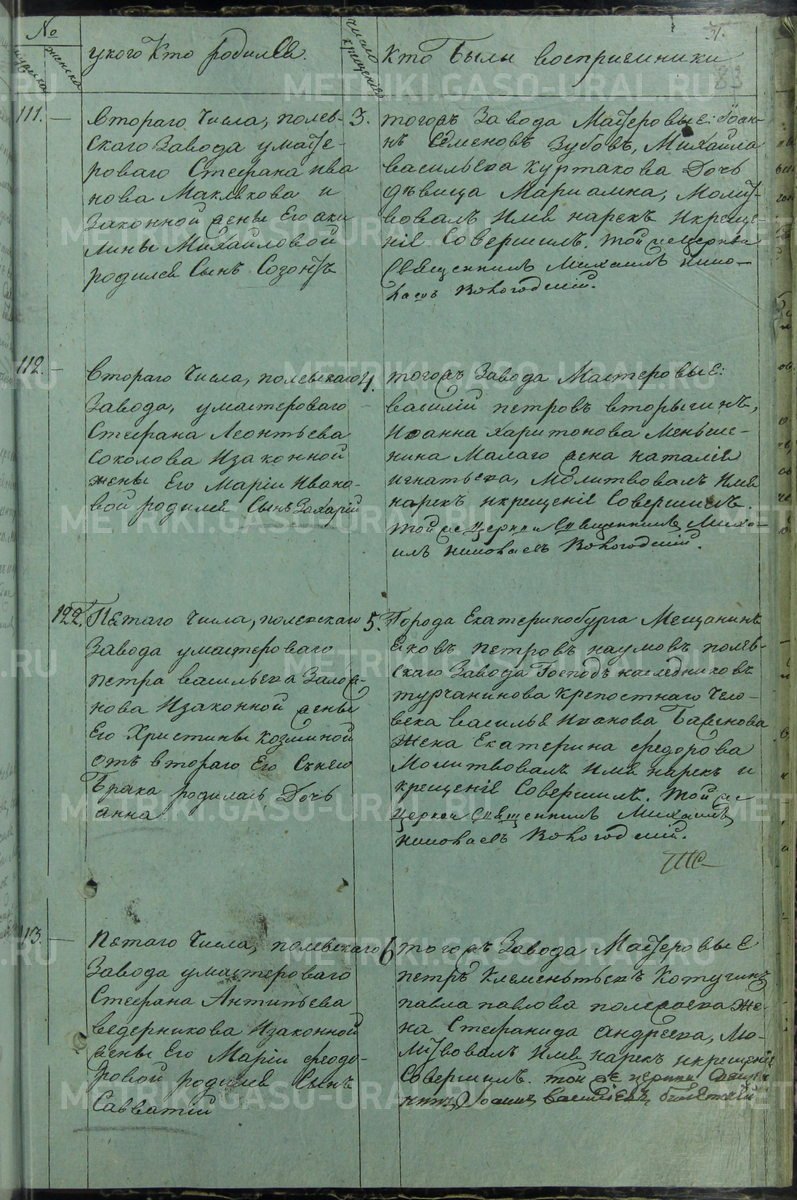 №
мужска
женска
укого Кто родился.
число крещения
Кто были восприемники
83
111. —
Втораго Числа, полев-
скаго Завода умасте-
роваго Стефана Ива
нова Маклакова и
Законной жены Его аки
лины Михайловой
родился Сынъ Созонтъ
3.
тогожъ Завода Мастеровые: Иоан-
нъ Семеновъ Зубовъ, Михаила
васильева куртакова Дочь
дѣвица Мариамна, Молит
вовалъ Имя нарекъ Икреще-
ніе Совершилъ. той же Церкви
Священникъ Михаилъ
Вологодскій.
112. —
Втораго Числа, полевскаго
Завода, умастероваго
Стефана Леонтьева
Соколова Изаконной
жены Его Маріи Ивано-
вой родился Сынъ Захарій
4.
тогожъ Завода Мастеровые:
василій петровъ вторыгинъ,
Иоанна Харитонова Меньше-
нина Малаго жена наталія
игнатьева, Молитвовалъ Имя
нарекъ икрещеніе Совершилъ.
той же Церкви Священникъ Миха-
илъ Вологодскій.
122.
Пятаго Числа, полевскаго
Завода умастероваго
петра васильева
Изаконной жены
Его Христины козминой
отъ втораго Его Сънею
Брака родилась Дочь
анна
5.
Города Екатеринобурга Мещанинъ
Яковъ петровъ наумовъ полев-
скаго Завода Господъ наследниковъ
турчанинова крепостнаго Чело-
века василья Иванова
жена Екатерина федорова
Молитвовалъ Имя нарекъ и
крещеніе Совершилъ. той же
Церкви Священникъ Михаилъ
Вологодскій.
113. —
Пятаго Числа, полевскаго
Завода умастероваго
Стефана Антипьева
ведерникова Изаконной
жены Его Маріи феодо-
ровой родился Сынъ
Савватій
6
тогожъ Завода Мастеровые
петръ Клементьевъ Котугинъ
павла павлова жe-
на Стефанида андреева, Мо-
литвовалъ Имя нарекъ икрещеніе
Совершилъ. той же церкви Священ
никъ Иоаннъ Василіевъ
METRIKI.GASO-URAL.RU